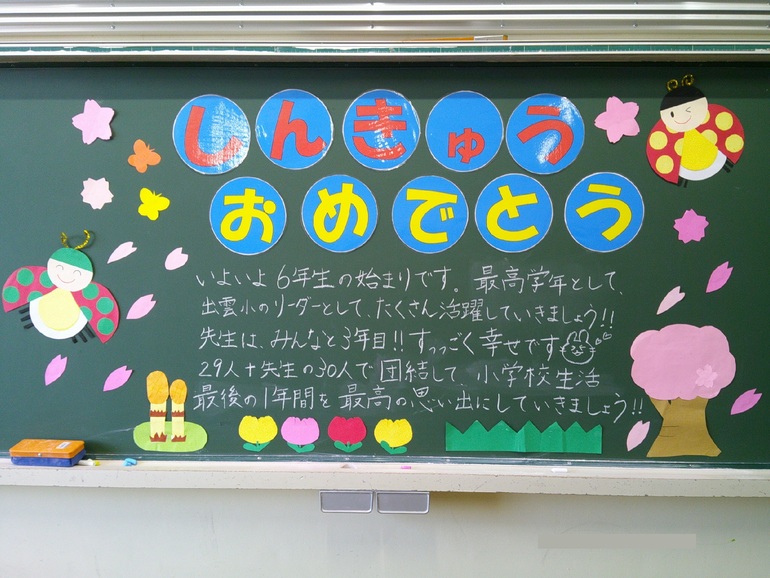 しんきゅう
おめでとう
いよいよ6年生の始まりです。最高学年として、
出雲小のリーダーとして、たくさん活躍していきましょう!!
先生は、みんなと3年目!!すっっごく幸せです
29人+先生の30人で団結して、小学校生活
最後の1年間を最高の思い出にしていきましょう!!